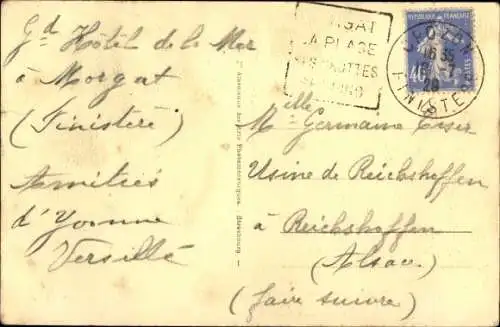 Gd Hôtel de la Mer
à Morgat
(Finistère)
Amitiés
d'Yvonne
Versillé
SA PLAGE
SES GROTTES
REPUBLIQUE FRANÇAISE
40
CROZON
FINISTERE
Melle Germaine
Usine de Reichshoffen
à Reichshoffen
(Alsace)
(faire suivre)